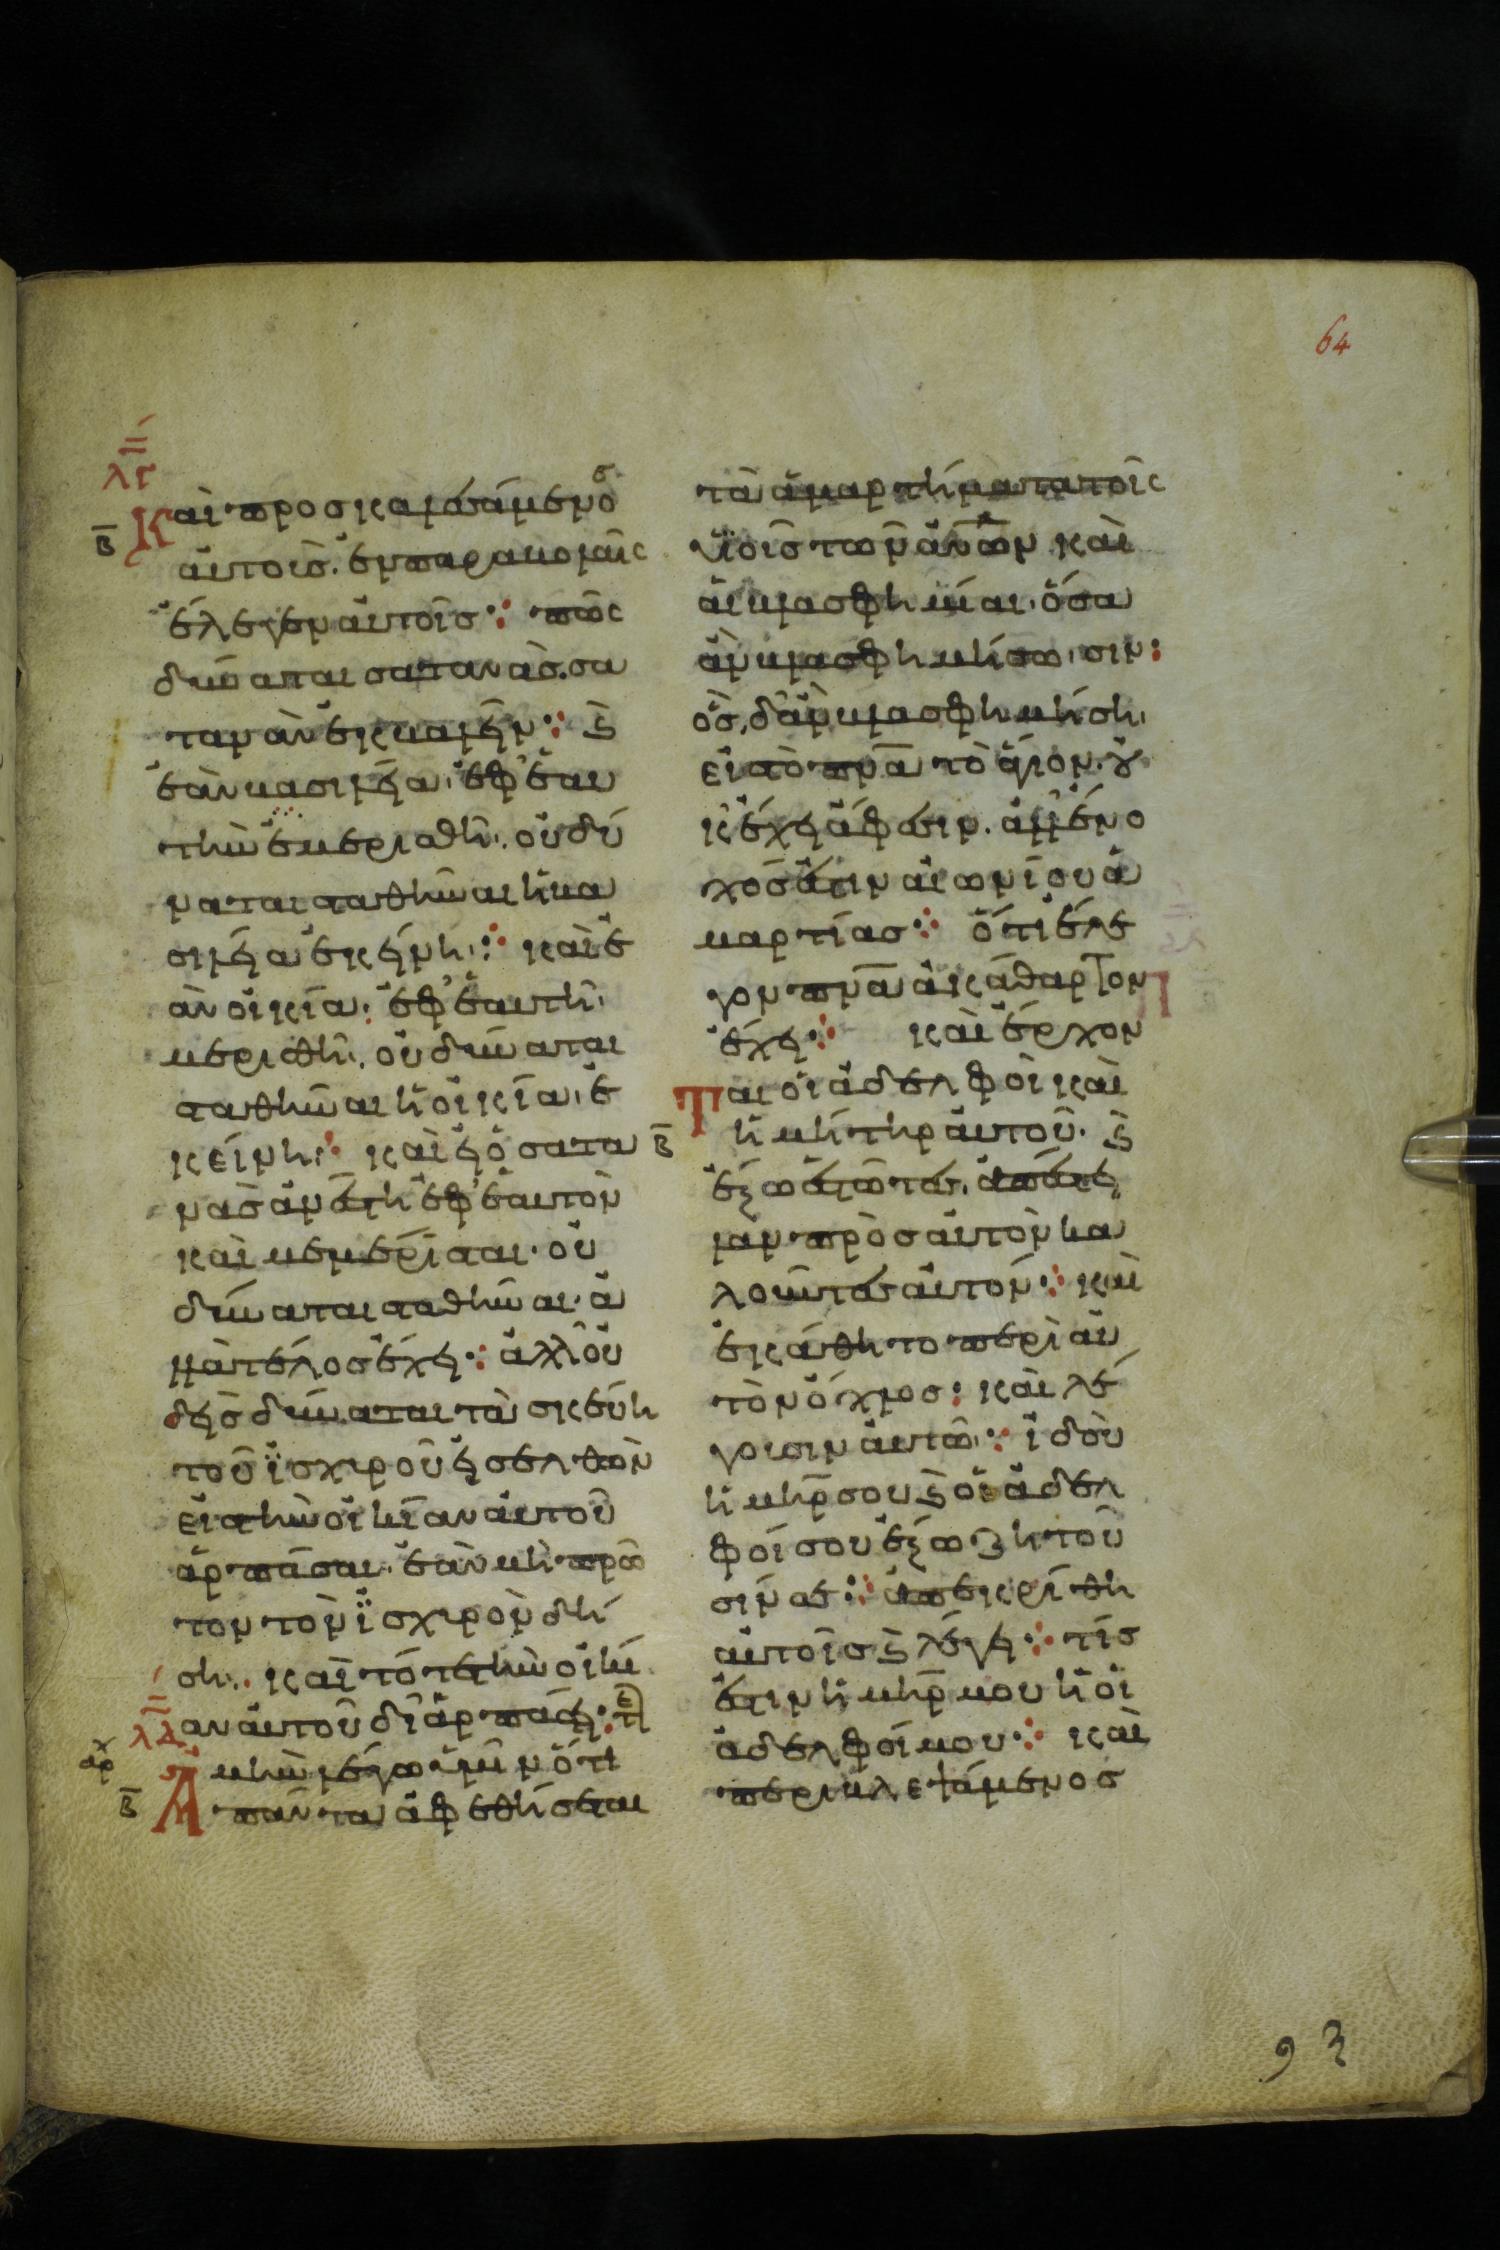 64
λγ
Καὶ προσκαλεσάμενος
β
αὐτοὺς. ἐν παραβολαῖς
ἔλεγεν αὐτοῖς· πῶς
δύναται σατανὰς. σα
τανὰν ἐκβαλεῖν· ϗ
ἐὰν βασιλεία, ἐφ' ἑαυ
τὴν μερισθῆ. οὐ δύ
ναται σταθῆναι ἡ βα
σιλεία ἐκείνη· καὶ ἐ
ὰν οἰκία, ἐφ' ἑαυτὴ
μερισθῆ. οὐ δύναται
σταθῆναι ἡ οἰκία, ἐ
κείνη· καὶ εἰ ὁ σατα
νᾶς ἀνέστη ἐφ' ἑαυτὸν
καὶ μεμέρισται. οὐ
δύναται σταθῆναι. ἀ
λλὰ τέλος ἔχει· ἀλλ' οὐ
δεὶς δύναται τὰ σκεύη
τοῦ ἰσχυροῦ εἰσελθὼν
εἰς τὴν οἰκίαν αὐτοῦ
ἁρπάσαι. ἐὰν μὴ πρῶ
τον τὸν ἰσχυρὸν δή
ση. καὶ τότε τὴν οἰκί
αν αὐτοῦ διαρπάσει· τε
λδ
αρχ
Ἀμὴν λέγω ὑμῖν ὅτι
β
πάντα ἀφεθήσεται
τὰ ἁμαρτήματα τοῖς
υἱοῖς τῶν ἀνων καὶ
αἱ βλασφημίαι. ὅσα
ἂν βλασφημήσωσιν:
ὃς δ' ἂν βλασφημήση.
εἰς τὸ πνα τὸ ἅγιον. οὐ
κ' ἔχει ἄφεσιν. ἀλλ' ἔνο
χός ἐστιν αἰωνίου ἁ
μαρτίας· ὅτι ἔλε
γον πνα ἀκάθαρτον
ἔχει· καὶ ἔρχον
Ται οἱ ἀδελφοὶ καὶ
β
ἡ μήτηρ αὐτοῦ. ϗ
ἔξω ἑστῶτες. ἀπέστει
λαν πρὸς αὐτὸν κα
λοῦντες αὐτόν· καὶ
ἐκάθητο περὶ αὐ
τὸν ὄχλος: καὶ λέ
γουσιν αὐτῶ· ἰδοὺ
ἡ μηρ σου ϗ οἱ ἀδελ
φοί σου ἔξω ζητοῦ
σίν σε· ἀπεκρίθη
αὐτοῖς ϗ λέγει· τίς
ἐστιν ἡ μηρ μου ἢ οἱ
ἀδελφοί μου· καὶ
περιβλεψάμενος
93